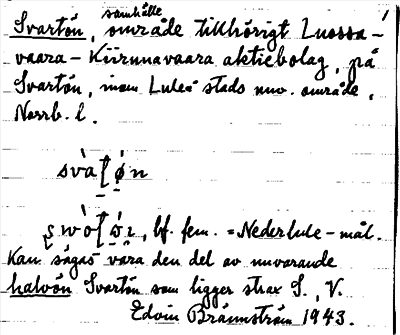 1
samhälle
Svartön, område tillhörigt Luossa-
vaara-Kiirunavaara aktiebolag, på
Svartön, inom Luleå stads nuv. område,
Norrb. l.
bf. fem. = Nederlule-mål.
Kan sägas vara den del av nuvarande
halvön Svartön som ligger strax S., V.
Edvin Brännström 1943.